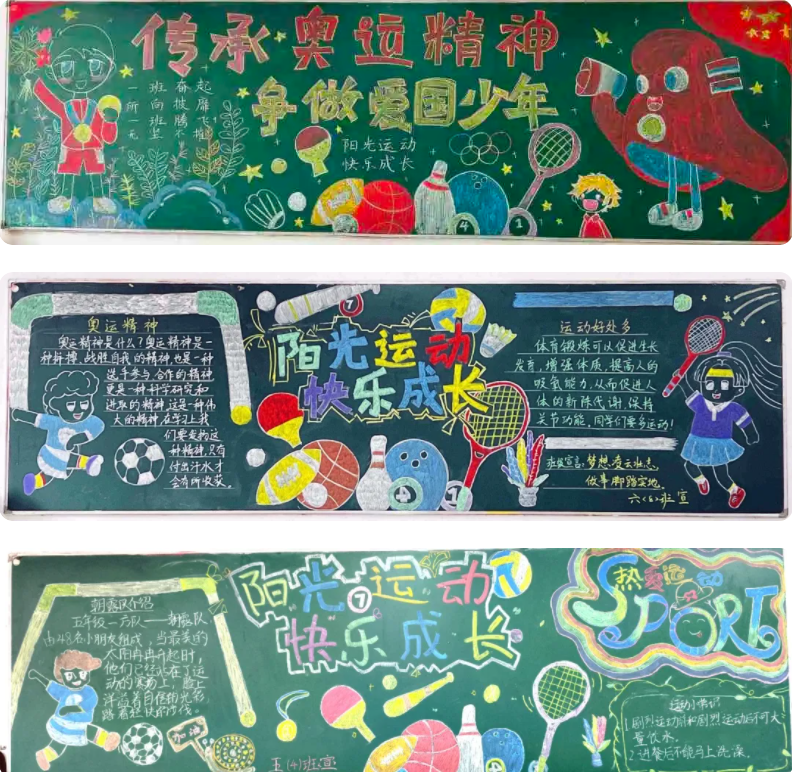 传承奥运精神
争做爱国少年
一班奋起
所向披靡
一班腾飞
无坚不摧
阳光运动
快乐成长
4
1
奥运精神
奥运精神是什么?奥运精神是一
种拼搏、战胜自我的精神,也是一种
选手参与、合作的精神
更是一种科学研究和
进取的精神,这是一种伟
大的精神,在学习上我
们要发扬这
种精神,只有
付出汗水才
会有所收获。
7
阳光运动
快乐成长
运动好处多
体育锻炼可以促进生长
发育,增强体质,提高人的
吸氧能力,从而促进人
体的新陈代谢,保持
关节功能,同学们要多运动!
班级宣言:梦想,凌云壮志,
做事脚踏实地。
六(6)班宣
介绍
五年级一六队
由48名小朋友组成,当最美的
太阳冉冉升起时,
他们已经在了运
动的赛场上,脸上
洋溢着自信的光彩,
踏着轻快的
加油
五(4)班宣
阳光运动
7
快乐成长
热爱运动
SPORT
运动小常识
1.剧烈运动时和剧烈运动后不可大
量饮水。
2.进餐后不能马上洗澡。